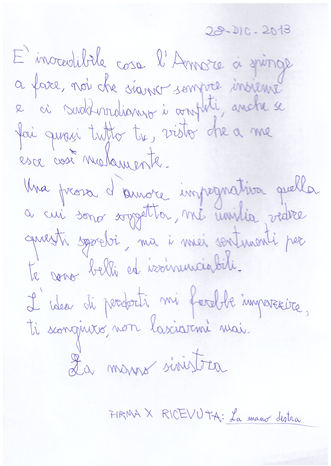 28-DIC-2013
E' incredibile cosa l'Amore ci spinge
a fare, noi che siamo sempre insieme
e ci suddividiamo i compiti, anche se
fai quasi tutto tu, visto che a me
esce così malamente.
Una prova d'amore impegnativa quella
a cui sono soggetta, mi umilia vedere
questi sgorbi, ma i miei sentimenti per
te sono belli ed irrinunciabili.
L'idea di perderti mi farebbe impazzire,
ti scongiuro, non lasciarmi mai.
La mano sinistra
FIRMA X RICEVUTA: La mano destra